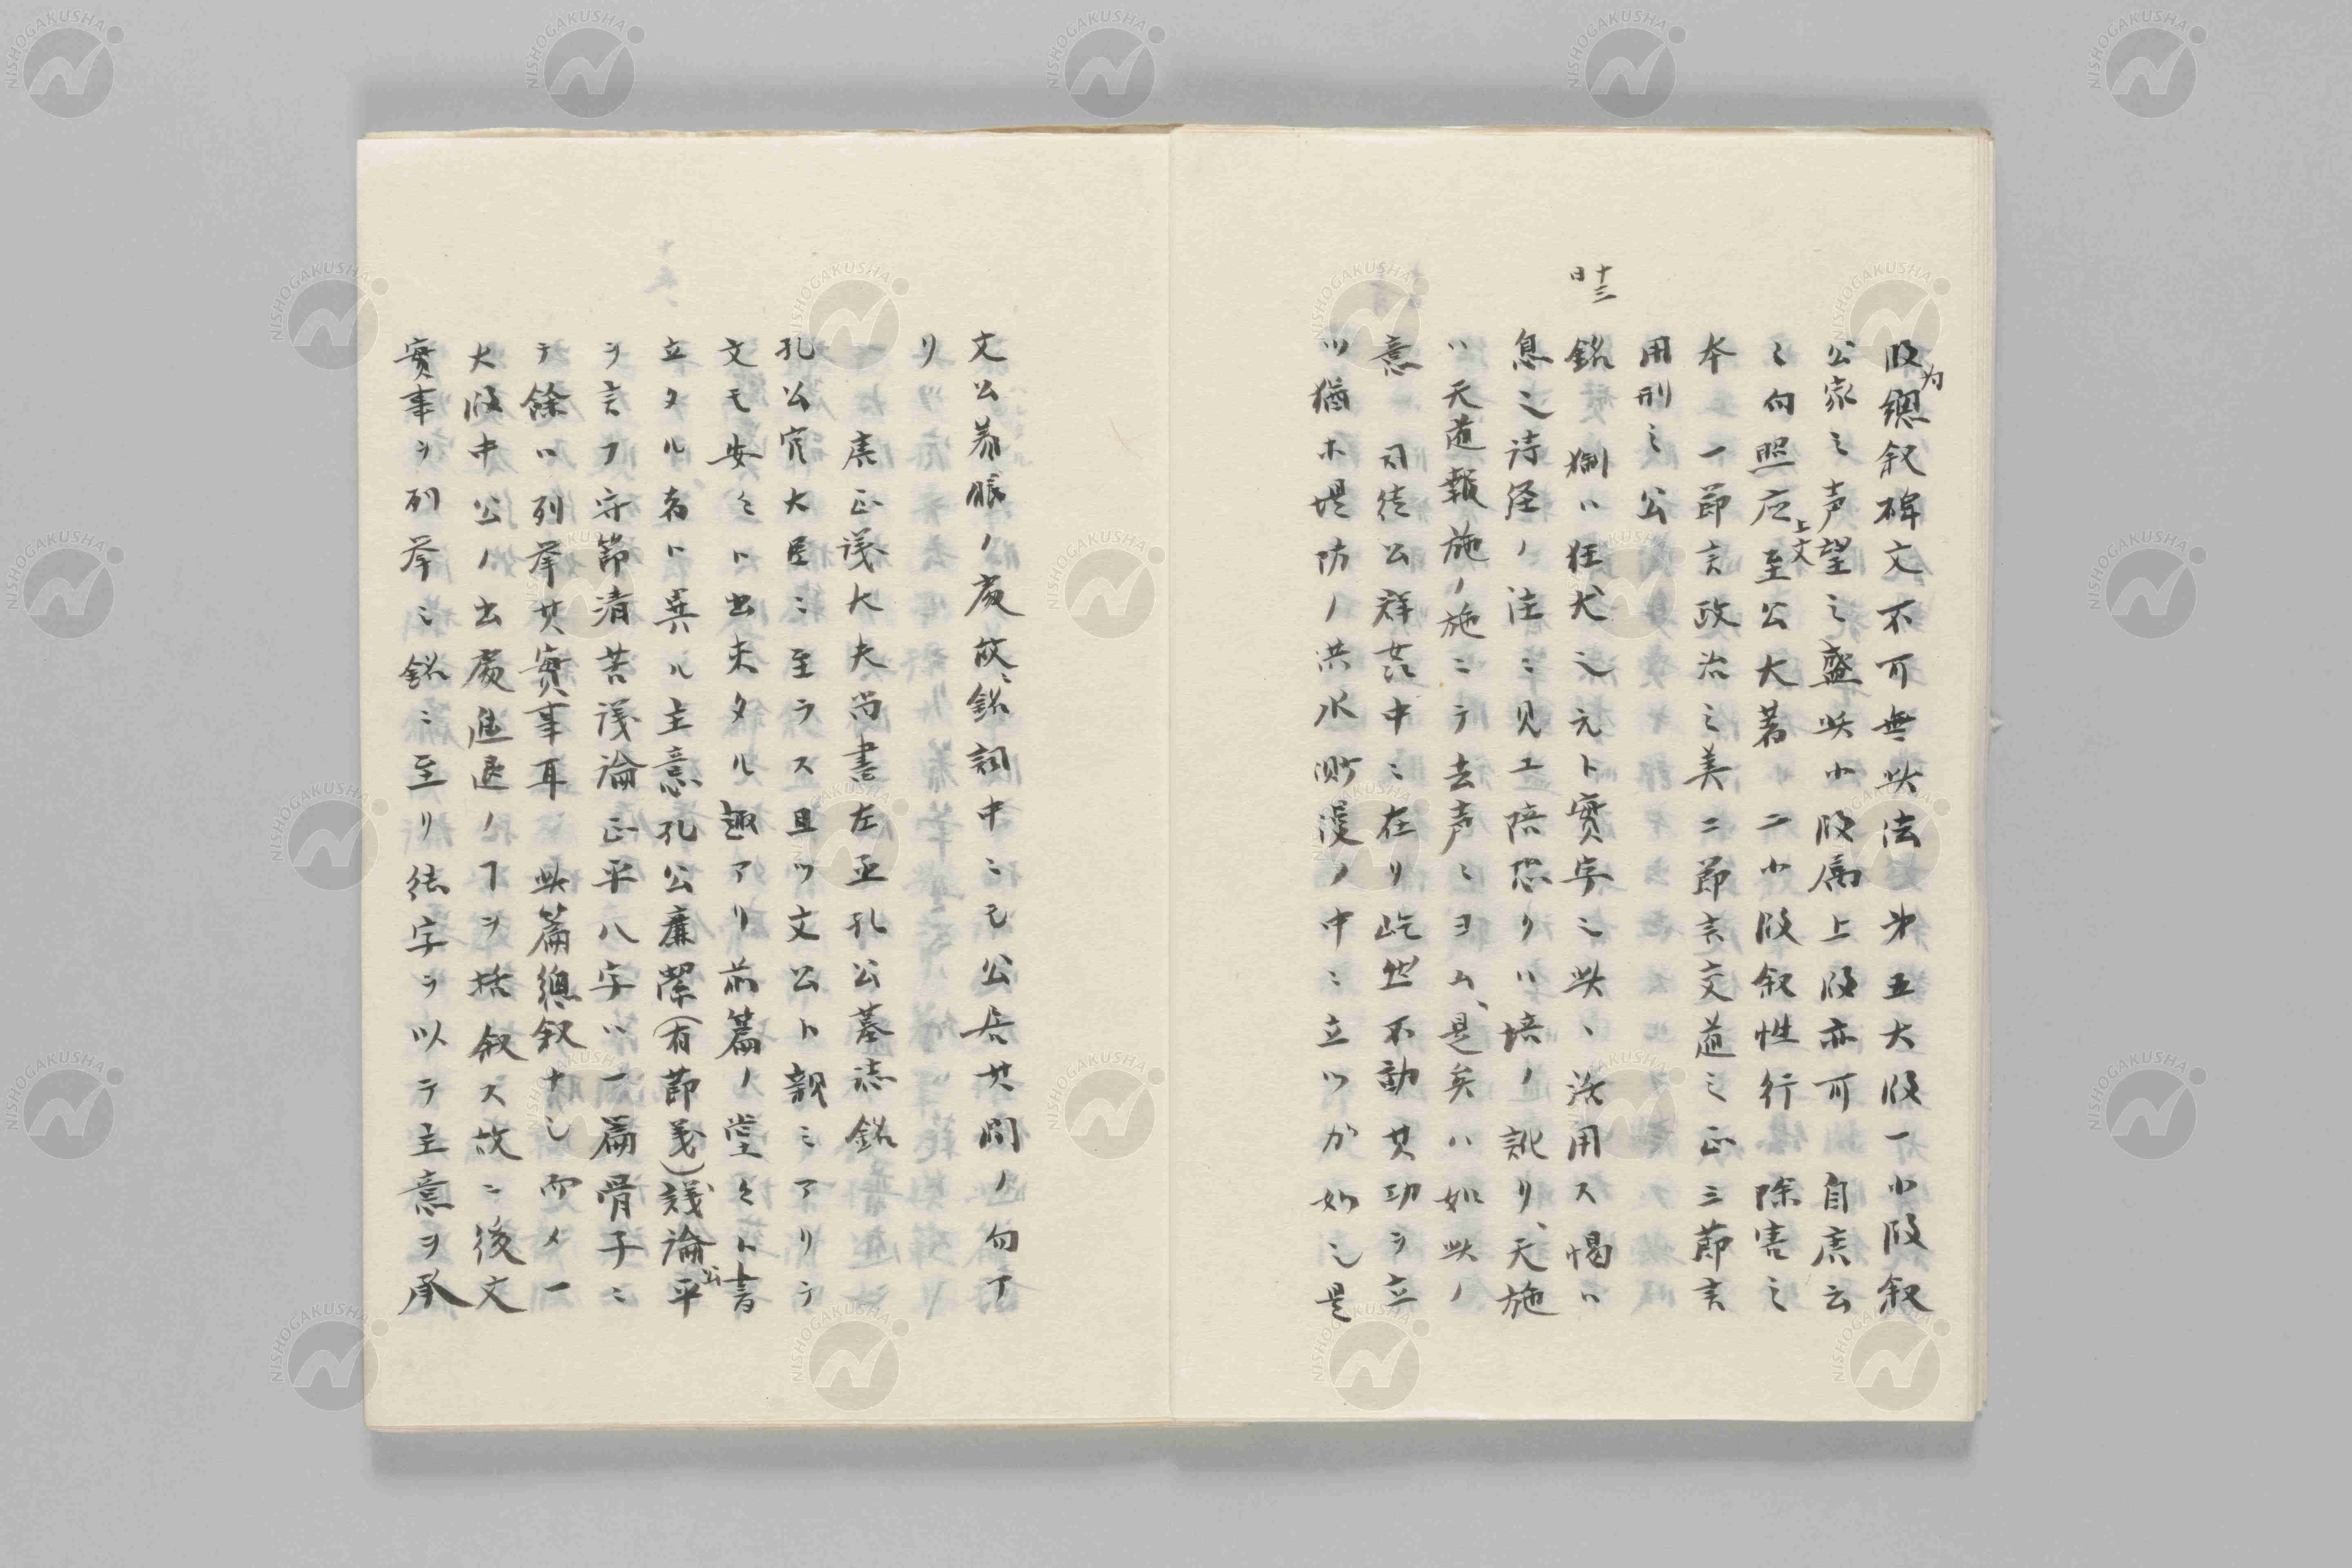 段為總叙碑文不可無此法第五大段一小段叙
公家之声望之盛此小段属上段亦可 自庶云
之向照应上文至公大著 二小段叙性行 除害之
本 一節言政治之美二節言交道之正三節言
用刑之公
十三日
銘 猘ハ狂犬之元ト實字之此、活用ス愒ハ
息之詩经ノ注ニ見エ陪恐リハ培ノ訛リ、天施
ハ天道報施ノ施ニテ去声ニヨム、是矣ハ如此ノ
意 司徒公群芸中ニ在リ屹然不動其功ヲ立
ツ猶ホ堤防ノ洪水渺漫ノ中ニ立ツガ如シ是
文公着眼ノ處故、銘詞中ニモ公居其間ノ句ア
リ
唐正議大夫尚書左丞孔公墓誌銘
孔公官大臣ニ至ラス且ツ文公ト親ミアリテ
文モ安々ト出来タル趣アリ前篇ノ堂々ト書
立タル者ト異ル主意孔公廉潔(有節義)議論公平
ヲ言フ守節清苦議論正平八字ハ一篇骨子ニ
テ餘ハ列挙其實事耳 此篇總叙ナシ而メ一
大段中公ノ出處進退ノヿヲ括叙ス故ニ後文
實事ヲ列挙シ銘ニ至リ結字ヲ以テ主意ヲ承